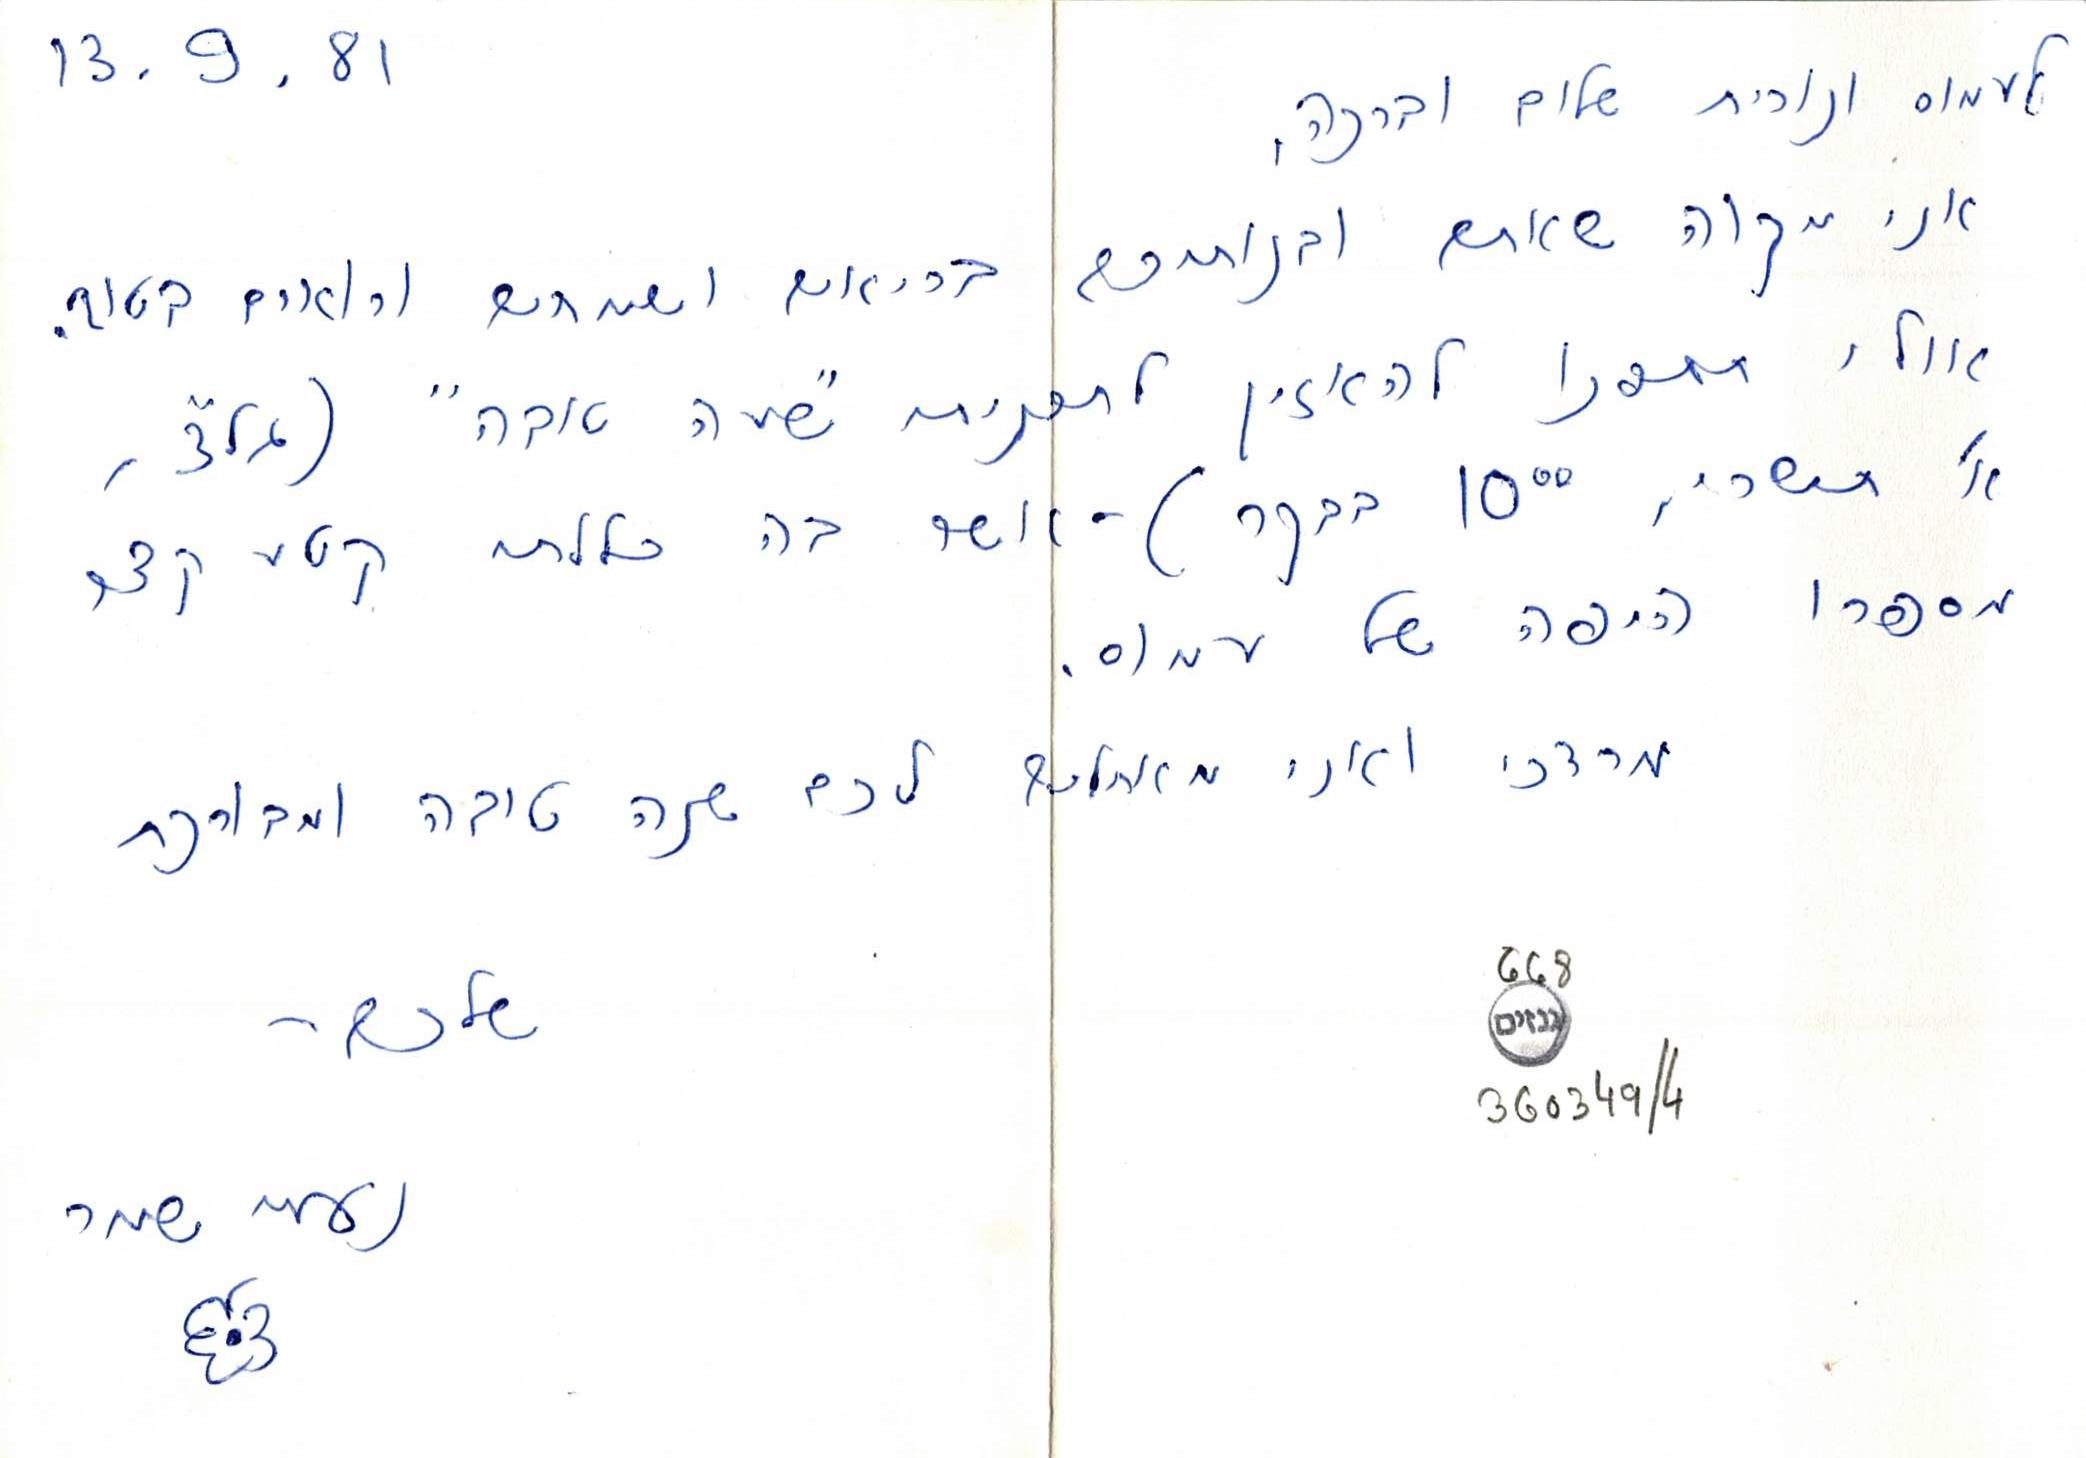 13.9.81
לעמוס ונורית שלום וברכה,
אני מקוה שאתם ובנותיכם בריאים ושמחים ורואים בטוב.
אולי תחפצו להאזין לתכנית "שעה טובה" (גל"צ,
א' תשרי, 10⁰⁰ בבקר) - אשר בה כללתי קטע קצר
מספרו היפה של עמוס.
מרדכי ואני מאחלים לכם שנה טובה ומבורכת
שלכם -
נעמי שמר
668
גנזים
360349/4